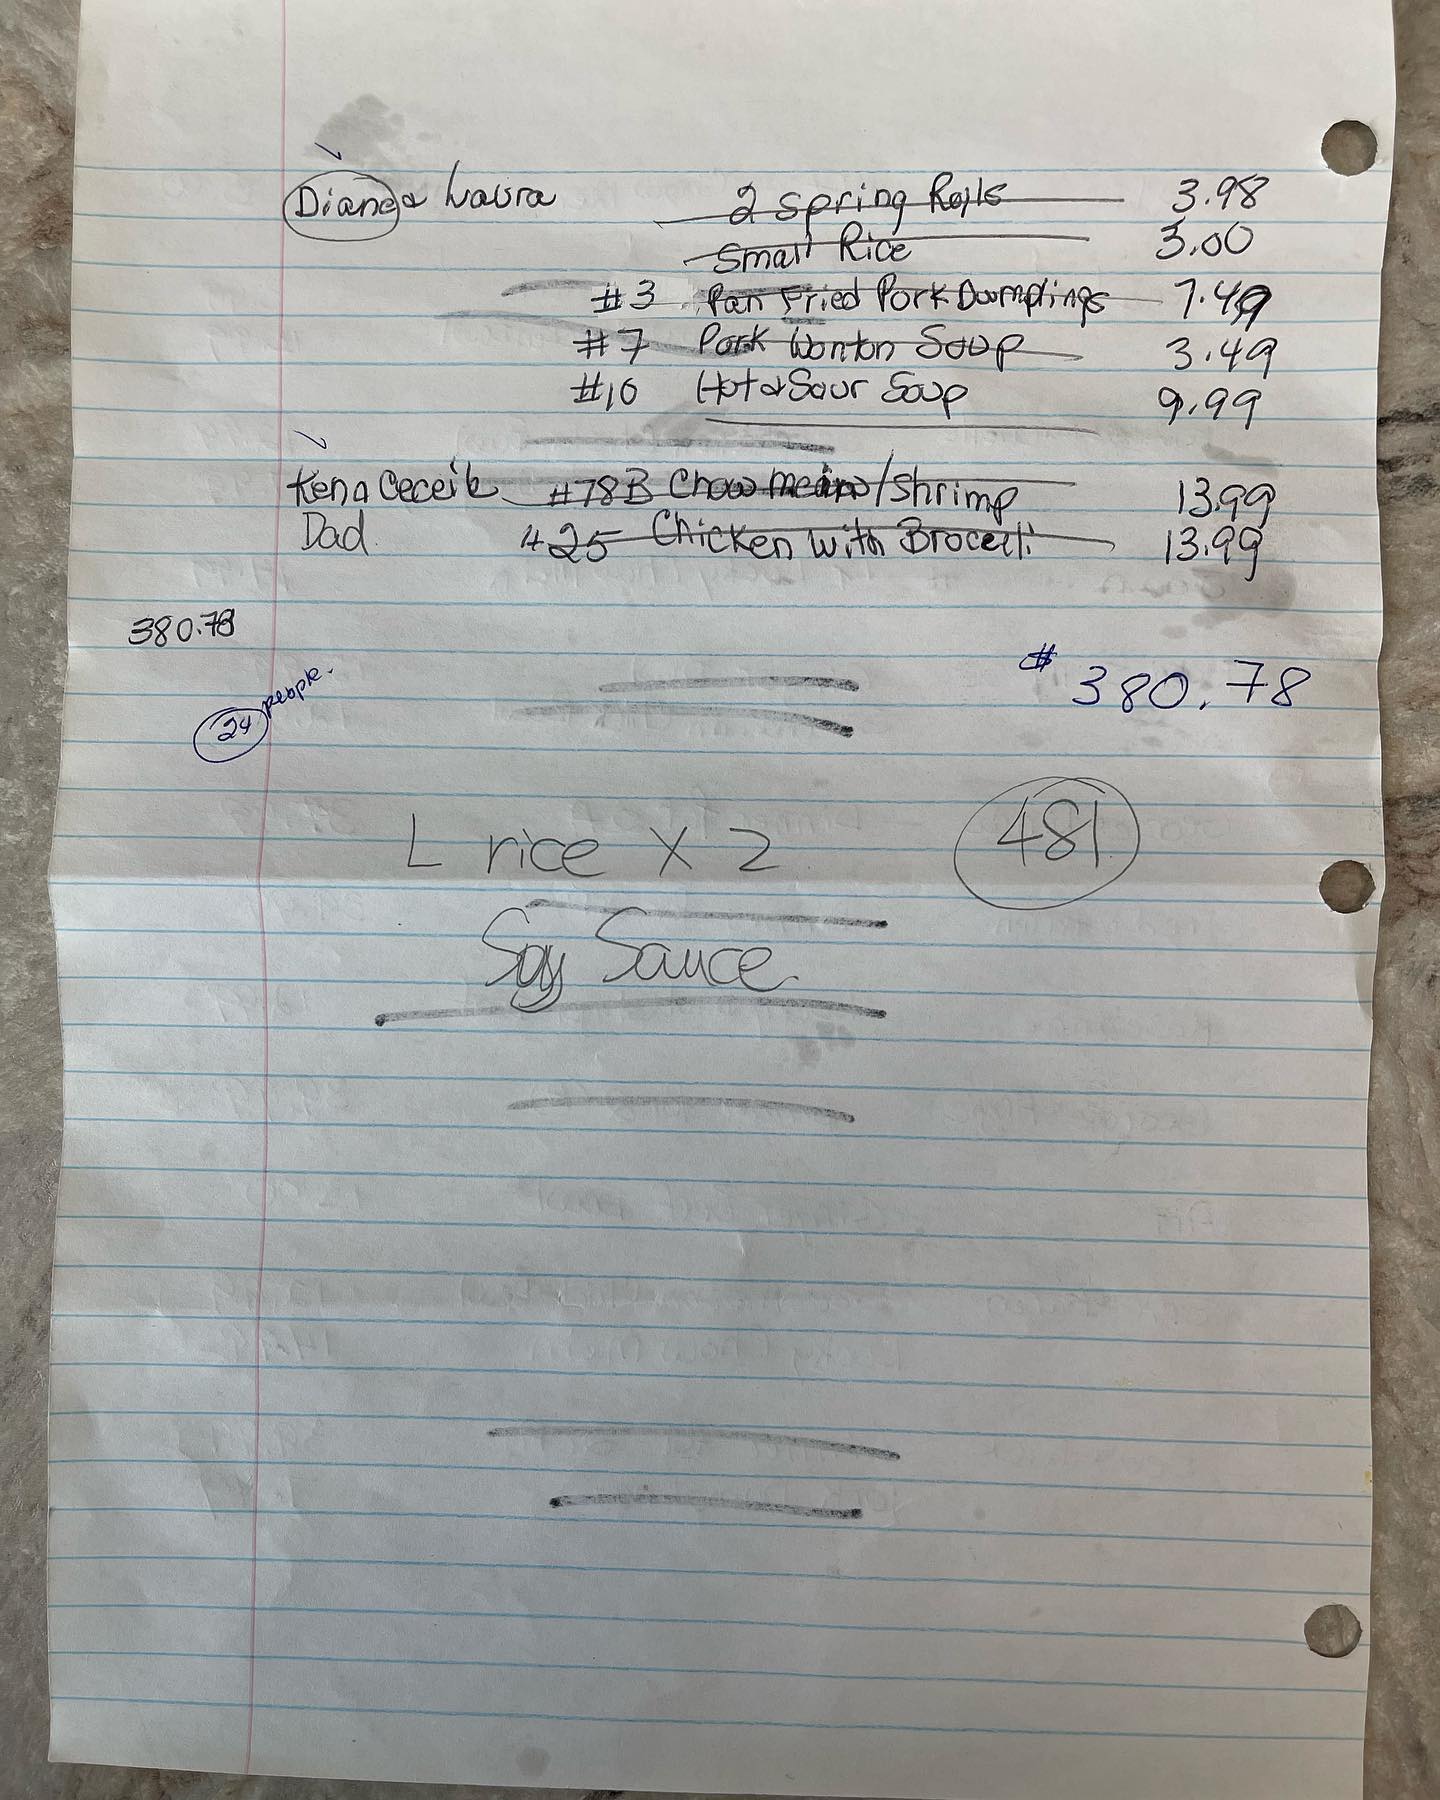 Diane & Laura 2 Spring Rolls 3.98
Small Rice 3.00
#3 Pan Fried Pork Doumplings 7.49
#7 Pork Wonton Soup 3.49
#10 Hot & Sour Soup 9.99
Ken & Ceceile #78B Chow mein w/ Shrimp 13.99
Dad #25 Chicken with Brocelli 13.99
380.78
$ 380.78
24 people.
L rice X 2 481
Soy Sauce